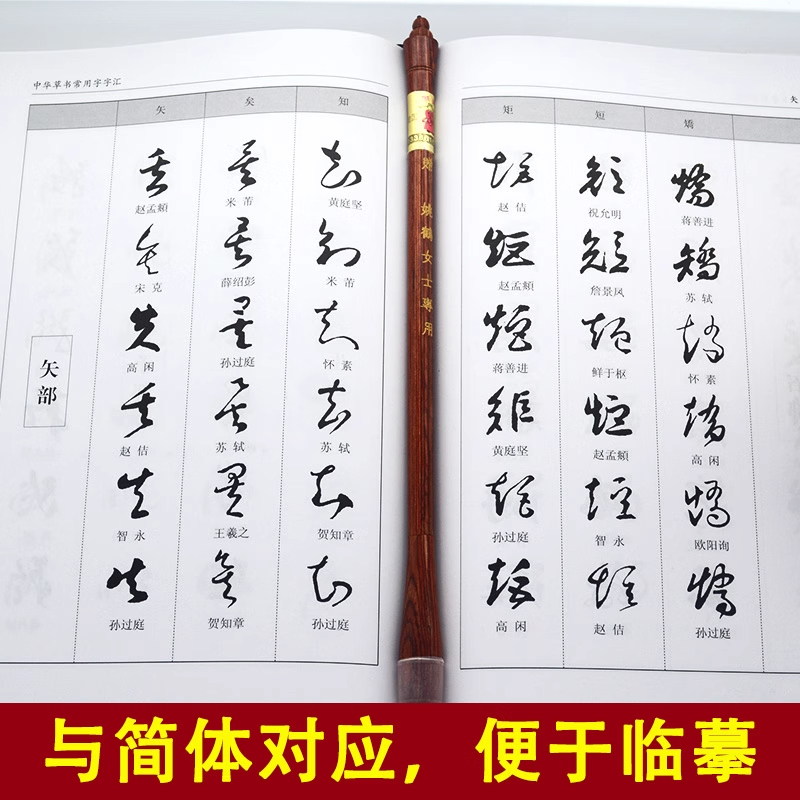 中华草书常用字字汇
矢 矣 知
赵孟頫 米芾 黄庭坚
宋克 薛绍彭 米芾
高闲 孙过庭 怀素
赵佶 苏轼 苏轼
智永 王羲之 贺知章
孙过庭 贺知章 孙过庭
矢部
赠 姚鹤女士專用
矢
矩 短 矯
赵佶 祝允明 蒋善进
赵孟頫 詹景凤 苏轼
蒋善进 鲜于枢 怀素
黄庭坚 赵孟頫 高闲
孙过庭 智永 欧阳询
高闲 赵佶 孙过庭
与简体对应，便于临摹